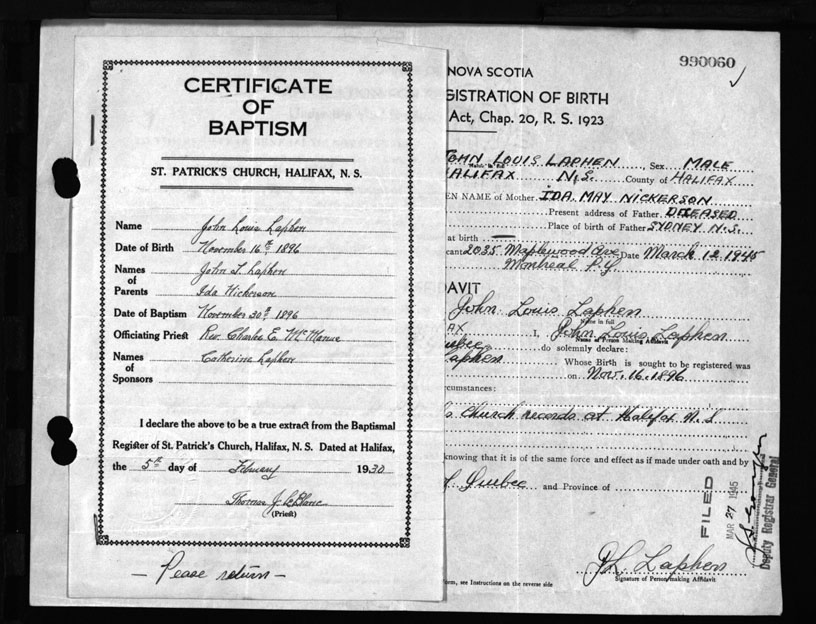 CERTIFICATE
OF
BAPTISM
ST. PATRICK'S CHURCH, HALIFAX, N. S.
Name John Louis Laphen
Date of Birth November 16th 1896
Names of Parents John T. Laphen
Ida Nickerson
Date of Baptism November 30th 1896
Officiating Priest Rev. Charles E. McManus
Names of Sponsors Catherine Laphen
I declare the above to be a true extract from the Baptismal
Register of St. Patrick's Church, Halifax, N. S. Dated at Halifax,
the 5th day of February 1930
Thomas J. LeBlanc
(Priest)
— Pease return —
990060
NOVA SCOTIA
GISTRATION OF BIRTH
Act, Chap. 20, R. S. 1923
JOHN LOUIS LAPHEN, Sex MALE
HALIFAX N.S. County of HALIFAX
EN NAME of Mother IDA MAY NICKERSON
Present address of Father DECEASED
Place of birth of Father SYDNEY N.S.
at birth —
cant 2035 Maplewood Ave Date March 12 1945
Montreal P.Q.
DAVIT
John Louis Laphen
Name in full
AX I, John Louis Laphen
Name of Person Making Affidavit
uebec do solemnly declare:
Laphen Whose Birth is sought to be registered was
on Nov. 16. 1896
cumstances:
Church records at Halifax N.S
knowing that it is of the same force and effect as if made under oath and by
Quebec and Province of
FILED
MAR 27 1945
Deputy Registrar General
J L Laphen
Signature of Person making Affidavit
orm, see Instructions on the reverse side